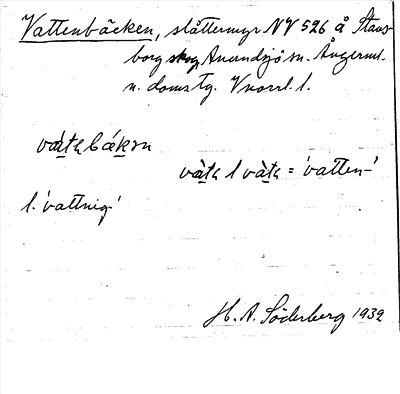 Vattenbäcken, slåttermyr NV 526 å Stavs-
borg skog Anundsjö sn. Ångerml.
n. doms tg. Vnorrl. l.
vàtn bákɜn
vàtn l vàtn = 'vatten-'
l. 'vattnig'
H. A. Söderberg 1932